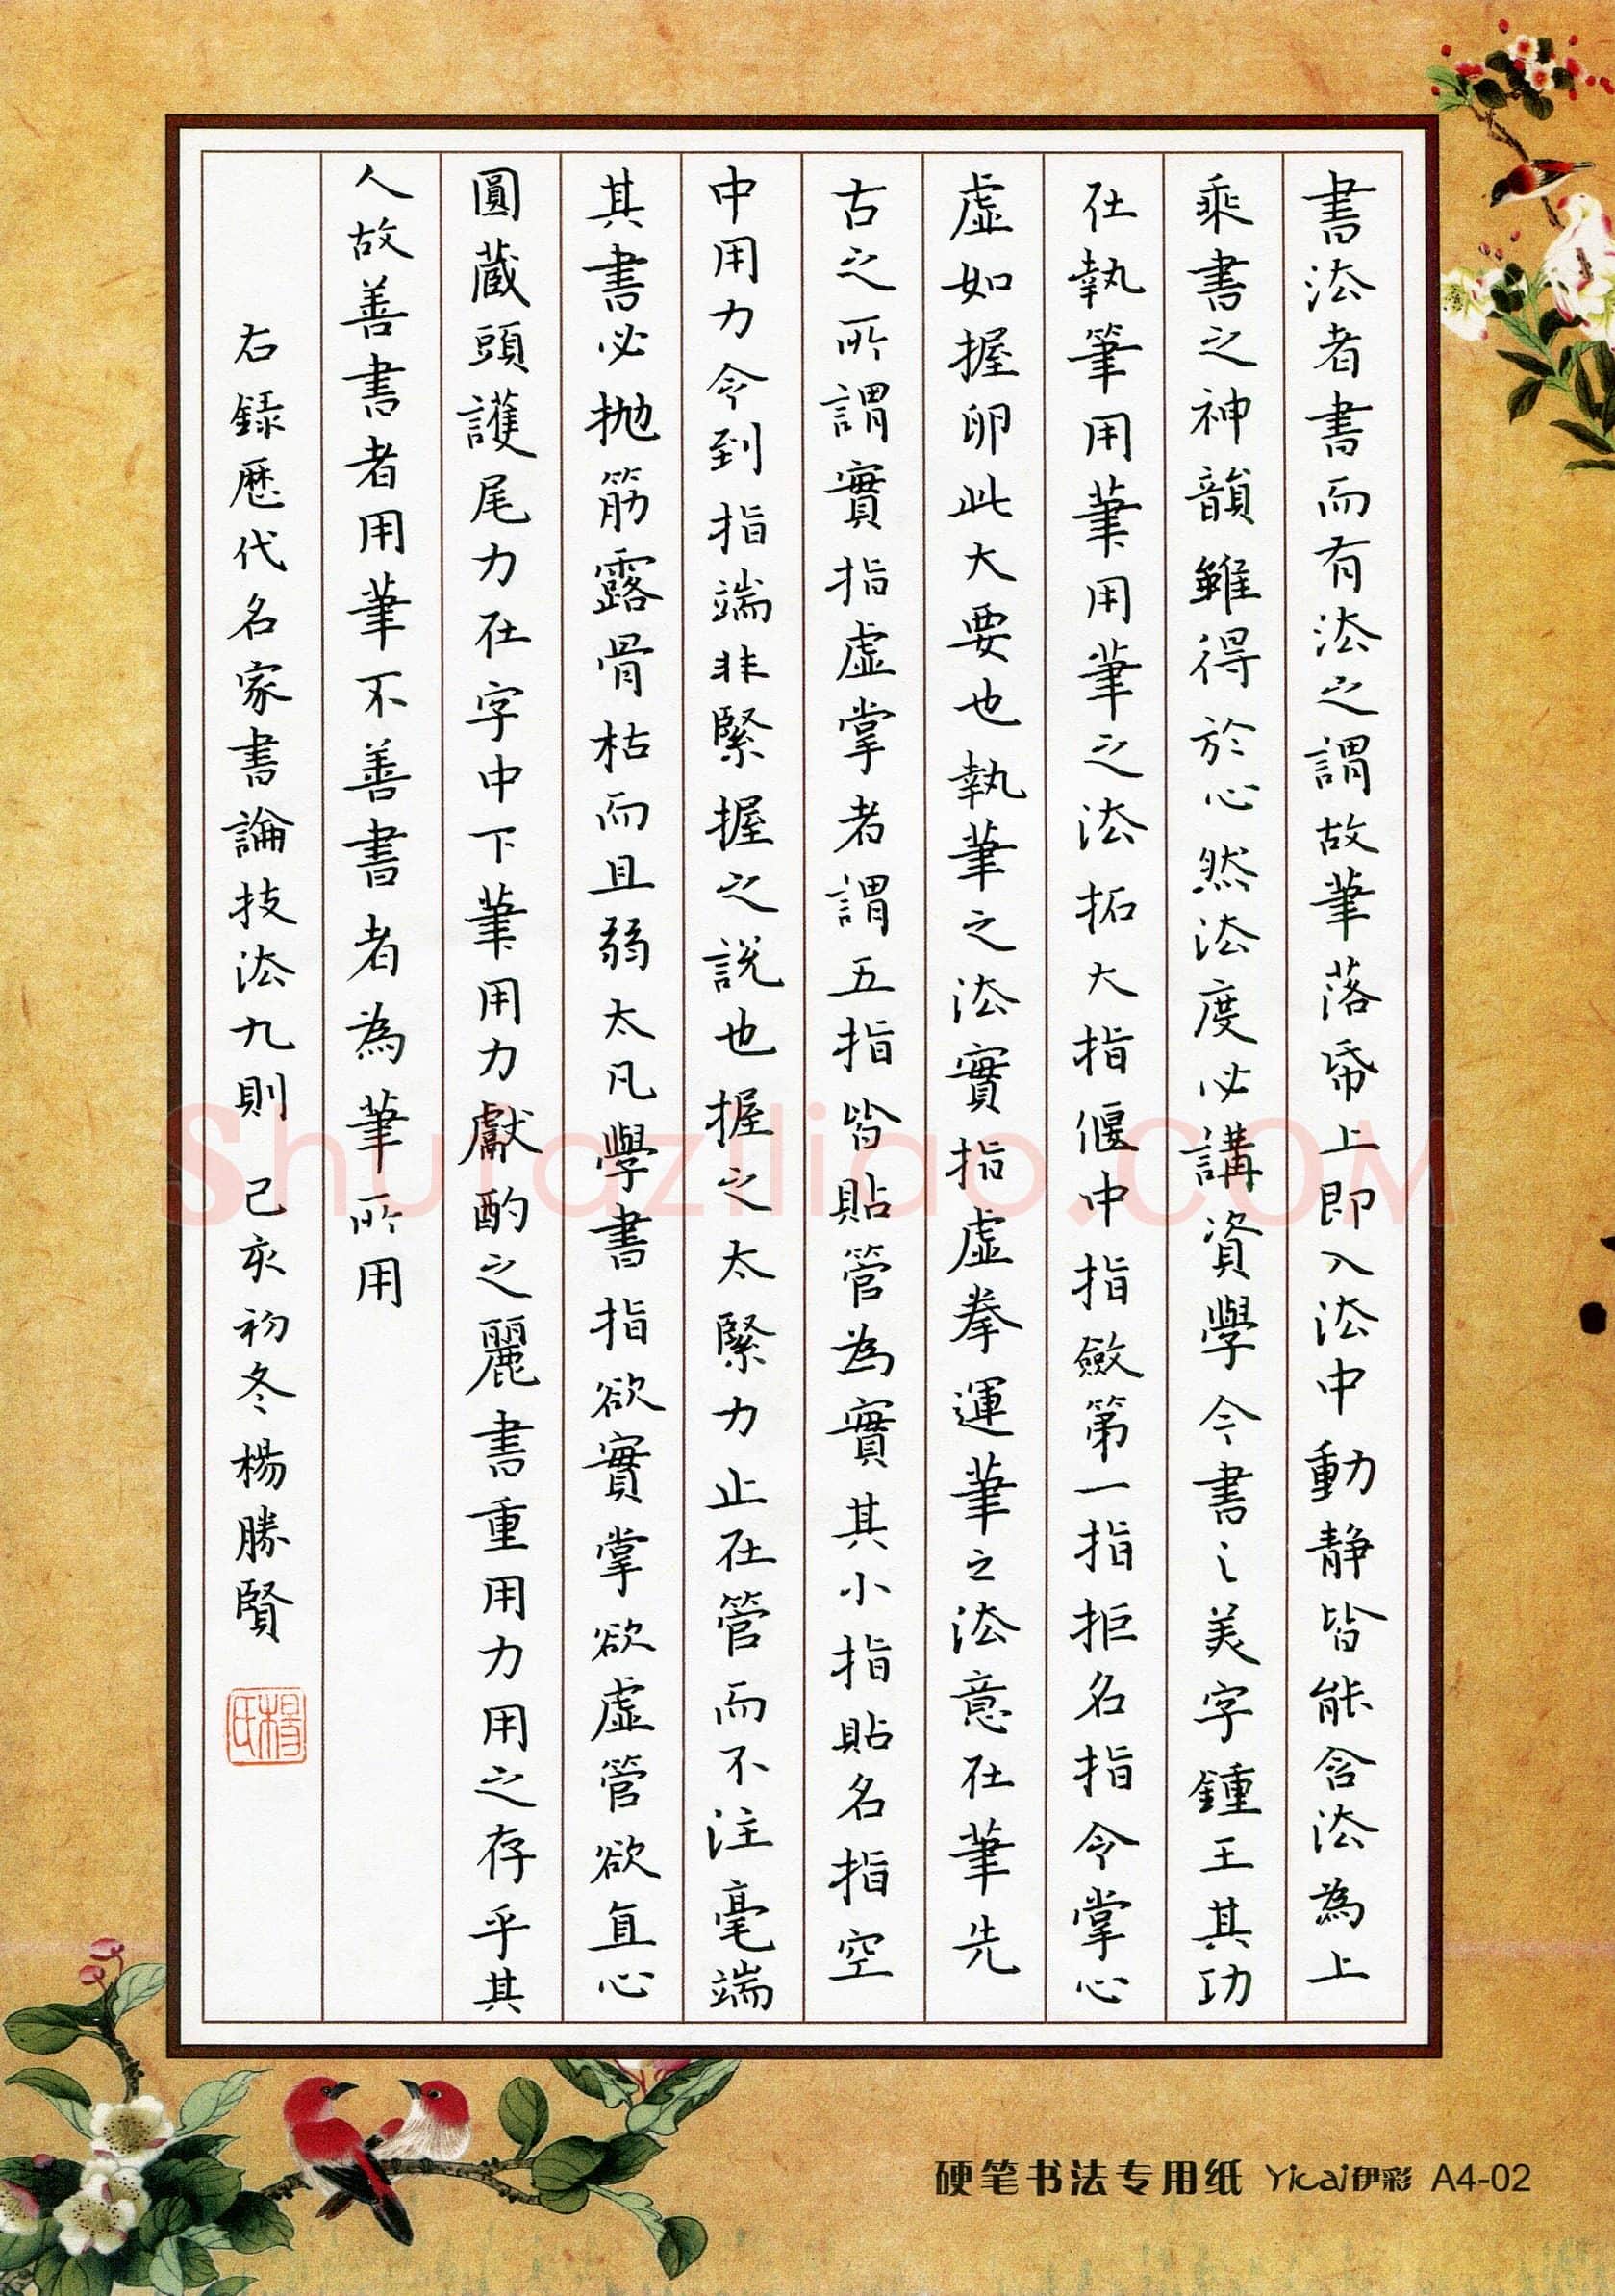 書法者書而有法之謂故筆落帋上即入法中動静皆能含法為上
乘書之神韻雖得於心然法度必講資學今書之美字鍾王其功
在執筆用筆用筆之法拓大指偃中指斂第一指拒名指令掌心
虛如握卵此大要也執筆之法實指虛拳運筆之法意在筆先
古之所謂實指虛掌者謂五指皆貼管為實其小指貼名指空
中用力令到指端非緊握之說也握之太緊力止在管而不注毫端
其書必拋筋露骨枯而且弱太凡學書指欲實掌欲虛管欲直心
圓蔵頭護尾力在字中下筆用力獻酌之麗書重用力用之存乎其
人故善書者用筆不善書者為筆所用
右録歷代名家書論技法九則 己亥初冬楊勝賢
楊氏
Shufaziliao.COM
硬笔书法专用纸 Yicai伊彩 A4-02